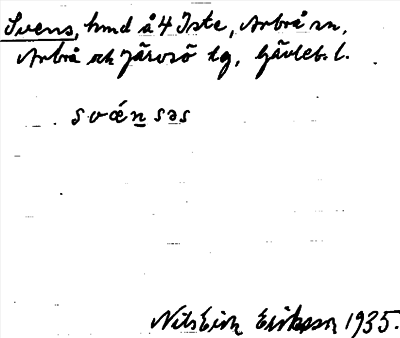 Svens, hmd å 4 Iste, Arbrå sn,
Arbrå och Järvsö tg, Gävleb. l.
svǽn̲səs
Nils Erik Eriksson 1935.